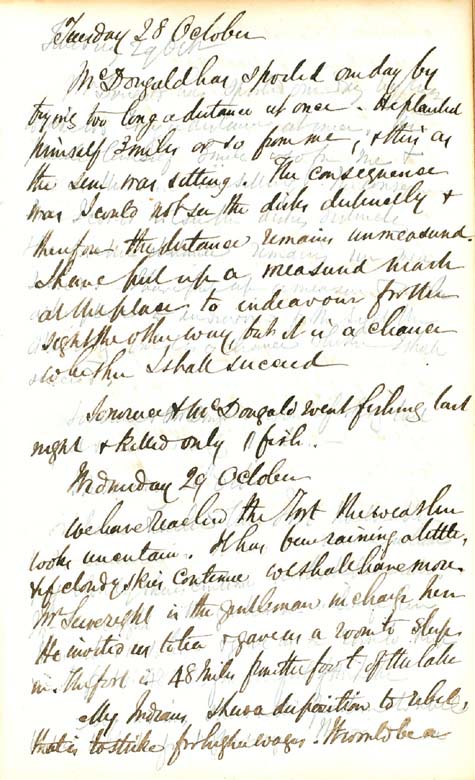 Tuesday 28 October
McDougald has spoiled one day by
trying too long a distance at once. He planted
himself 3 miles or so from me, & this as
the sun was setting. The consequence
was I could not see the disks distinctly &
therefore the distance remains unmeasured
I have put up a measured mark
at the place to endeavour for the
sight the other way, but it is a chance
whether I shall succeed
& McDougald went fishing last
night & killed only 1 fish.
Wednesday 29 October
We have reached the Fort the weather
looks uncertain. It has been raining a little,
& if cloudy skies continue we shall have more.
Mr Siveright is the gentleman in charge here
He invited us to tea & gave us a room to sleep
in. The fort is 48 miles from the foot of the lake
My Indians shew a disposition to rebel,
that is to strike for higher wages. It would be a